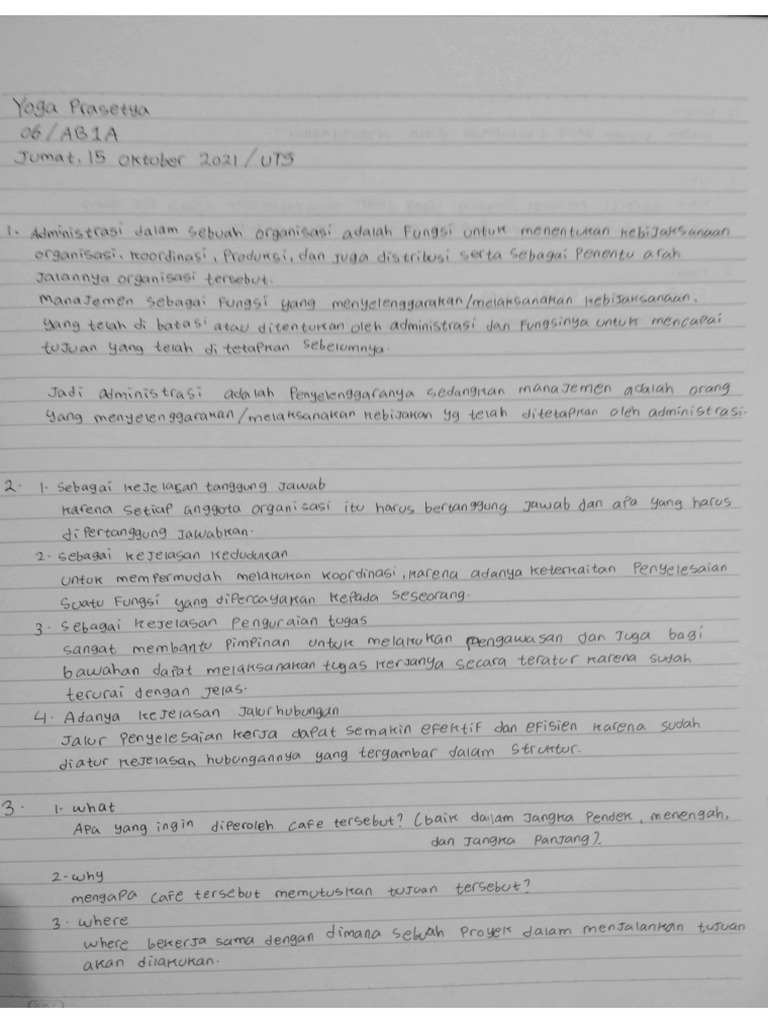 Yoga Prasetya
06/AB1A
Jumat, 15 Oktober 2021/UTS
1. Administrasi dalam sebuah organisasi adalah fungsi untuk menentukan kebijaksanaan
organisasi, koordinasi, produksi, dan juga distribusi serta sebagai penentu arah
jalannya organisasi tersebut.
Manajemen sebagai fungsi yang menyelenggarakan/melaksanakan kebijaksanaan,
yang telah di batasi atau ditentukan oleh administrasi dan fungsinya untuk mencapai
tujuan yang telah di tetapkan sebelumnya.
Jadi administrasi adalah penyelenggaranya sedangkan manajemen adalah orang
yang menyelenggarakan/melaksanakan kebijakan yg telah ditetapkan oleh administrasi.
2. 1. Sebagai kejelasan tanggung jawab
karena setiap anggota organisasi itu harus bertanggung jawab dan apa yang harus
dipertanggung jawabkan.
2. Sebagai kejelasan kedudukan
untuk mempermudah melakukan koordinasi, karena adanya keterkaitan penyelesaian
suatu fungsi yang dipercayakan kepada seseorang.
3. Sebagai kejelasan penguraian tugas
sangat membantu pimpinan untuk melakukan pengawasan dan juga bagi
bawahan dapat melaksanakan tugas kerjanya secara teratur karena sudah
terurai dengan jelas.
4. Adanya kejelasan jalur hubungan
Jalur penyelesaian kerja dapat semakin efektif dan efisien karena sudah
diatur kejelasan hubungannya yang tergambar dalam struktur.
3. 1. What
Apa yang ingin diperoleh cafe tersebut? (baik dalam jangka pendek, menengah,
dan jangka panjang).
2. Why
mengapa cafe tersebut memutuskan tujuan tersebut?
3. where
where bekerja sama dengan dimana sebuah proyek dalam menjalankan tujuan
akan dilakukan.